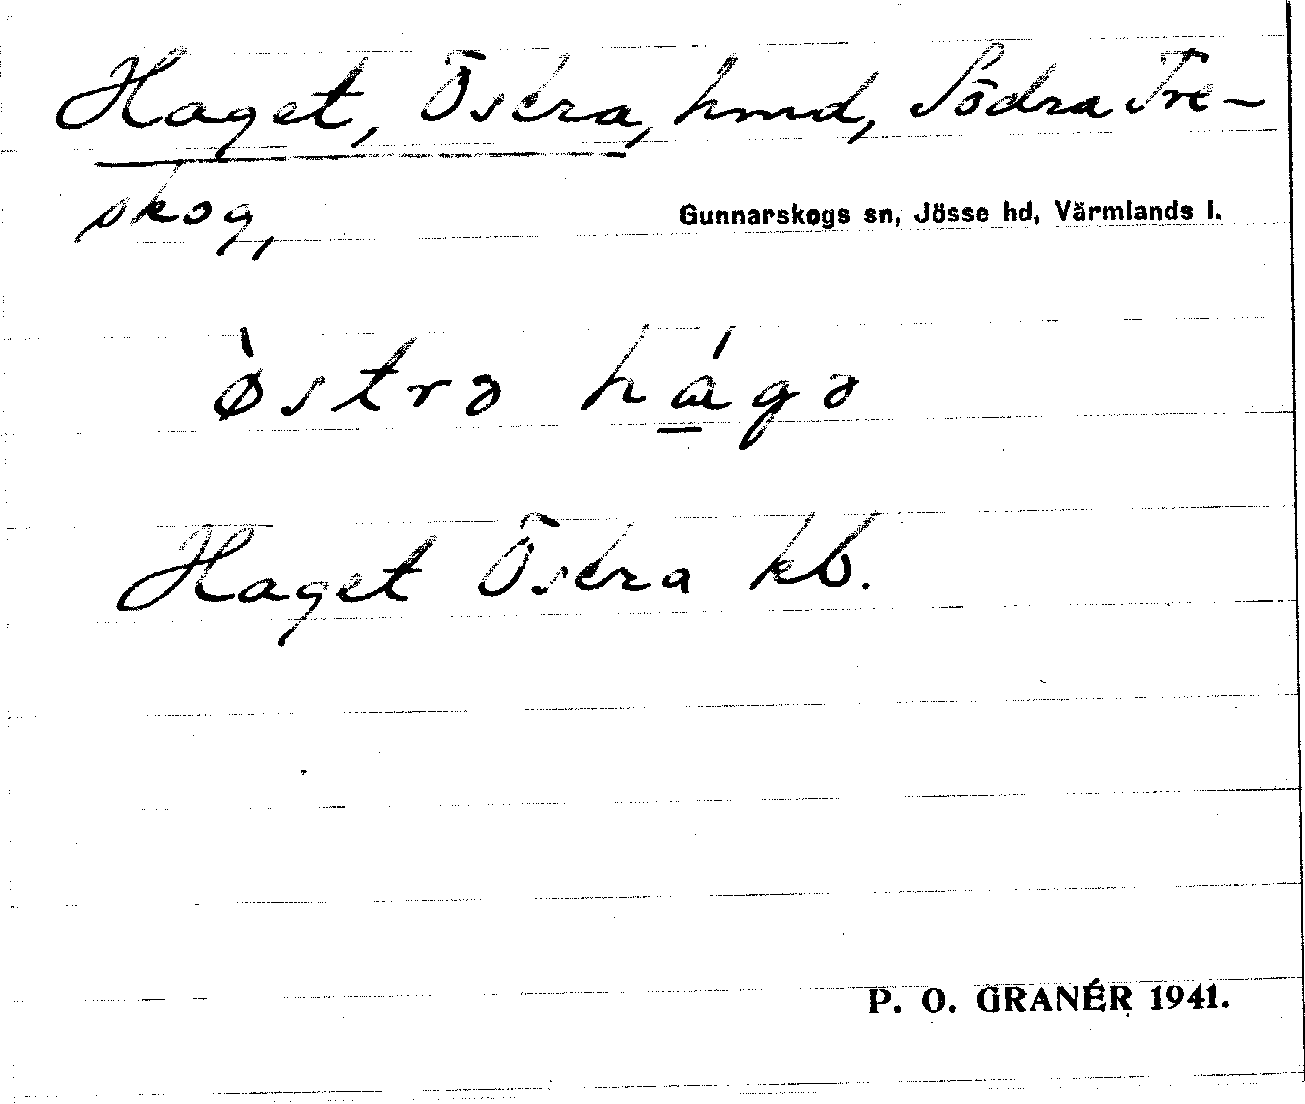 Haget, Östra, hmd, Södra Tre-
skog,
Gunnarskogs sn, Jösse hd, Värmlands l.
ø̀strə há̲gə
Haget Östra kb.
P. O. GRANÉR 1941.